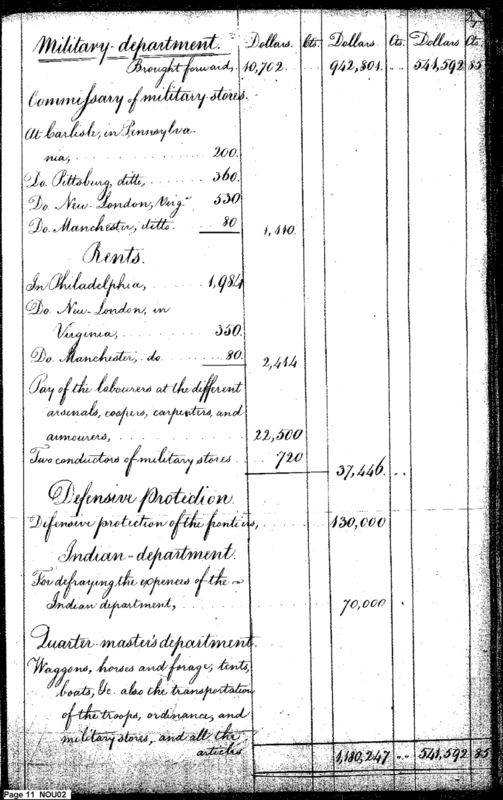 Military-department. Dollars. Cts. Dollars. Cts. Dollars Cts.
Brought forward, 10,762 .. 942,801. .. 541,592 85
Commissary of military stores.
At Carlisle, in Pennsylva-
nia, 200.
Do. Pittsburg, ditto, 360.
Do. New-London, Virga. 530
Do. Manchester, ditto. 80 1,110.
Rents.
In Philadelphia, 1,984
Do. New-London, in
Virginia, 350.
Do. Manchester, do. 80. 2,414
Pay of the labourers at the different
arsenals, coopers, carpenters, and
armourers, 22,500
Two conductors of military stores 720 37,446 ..
Defensive protection
Defensive protection of the frontiers, 130,000
Indian-department.
For defraying the expences of the
Indian department, 70,000
Quarter-master's department
Waggons, horses and forage, tents,
boats, &c. also the transportation
of the troops, ordinance, and
military stores, and all the
articles 1,180,247 .. 541,592 85
Page 11 NOU02